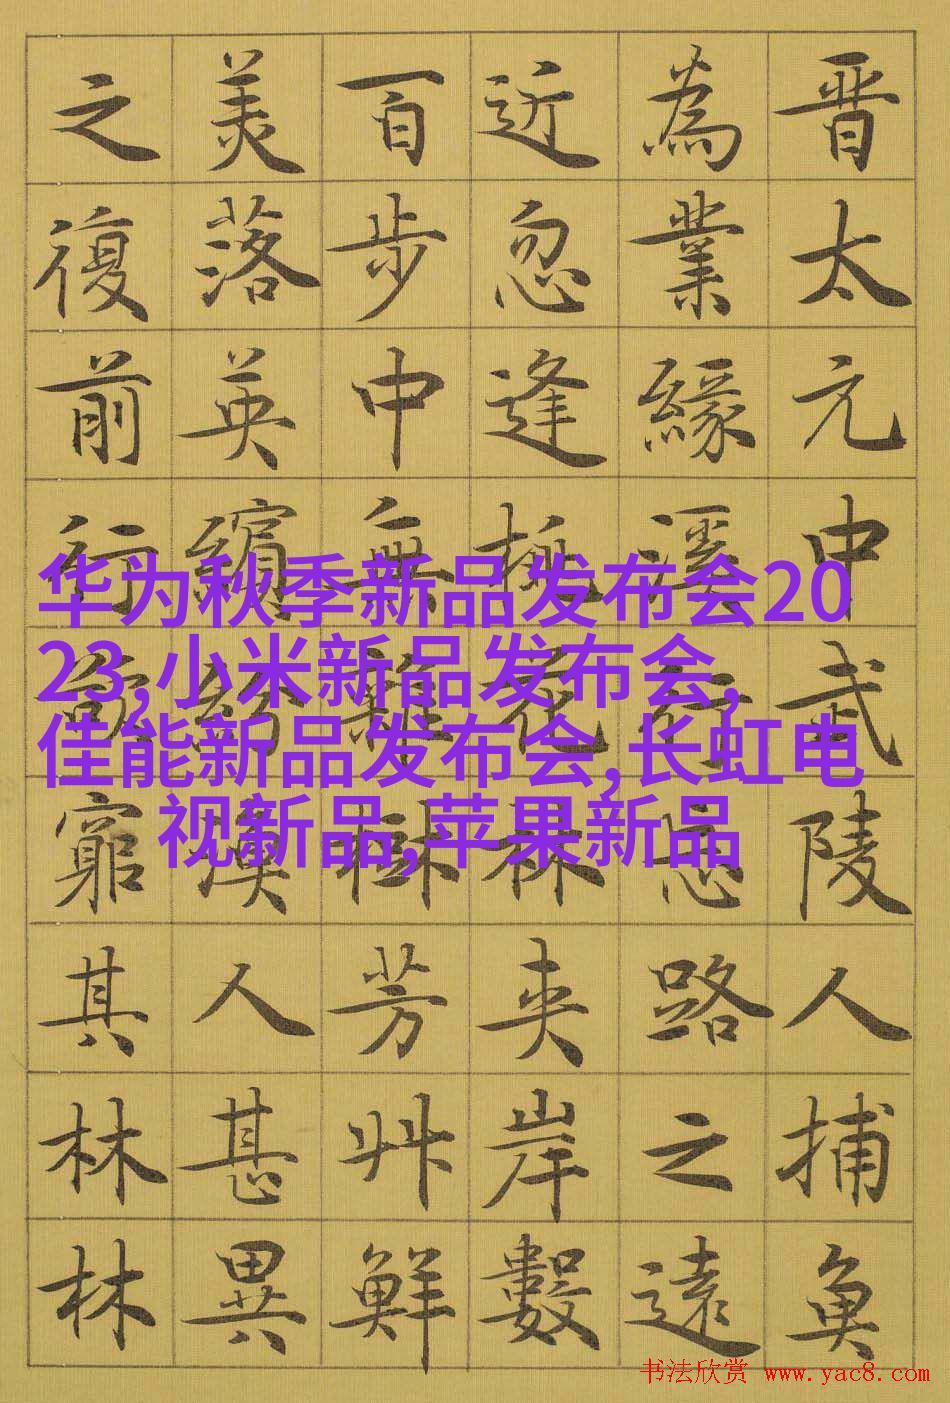 晋太元中武陵人捕魚
為業緣溪行忘路之遠
近忽逢桃花林夾岸數
百步中無雜樹芳艸鮮
美落英繽紛漁人甚異
之復前行欲窮其林林
华为秋季新品发布会20
23,小米新品发布会,
佳能新品发布会,长虹电
视新品,苹果新品
书法欣赏 www.yac8.com